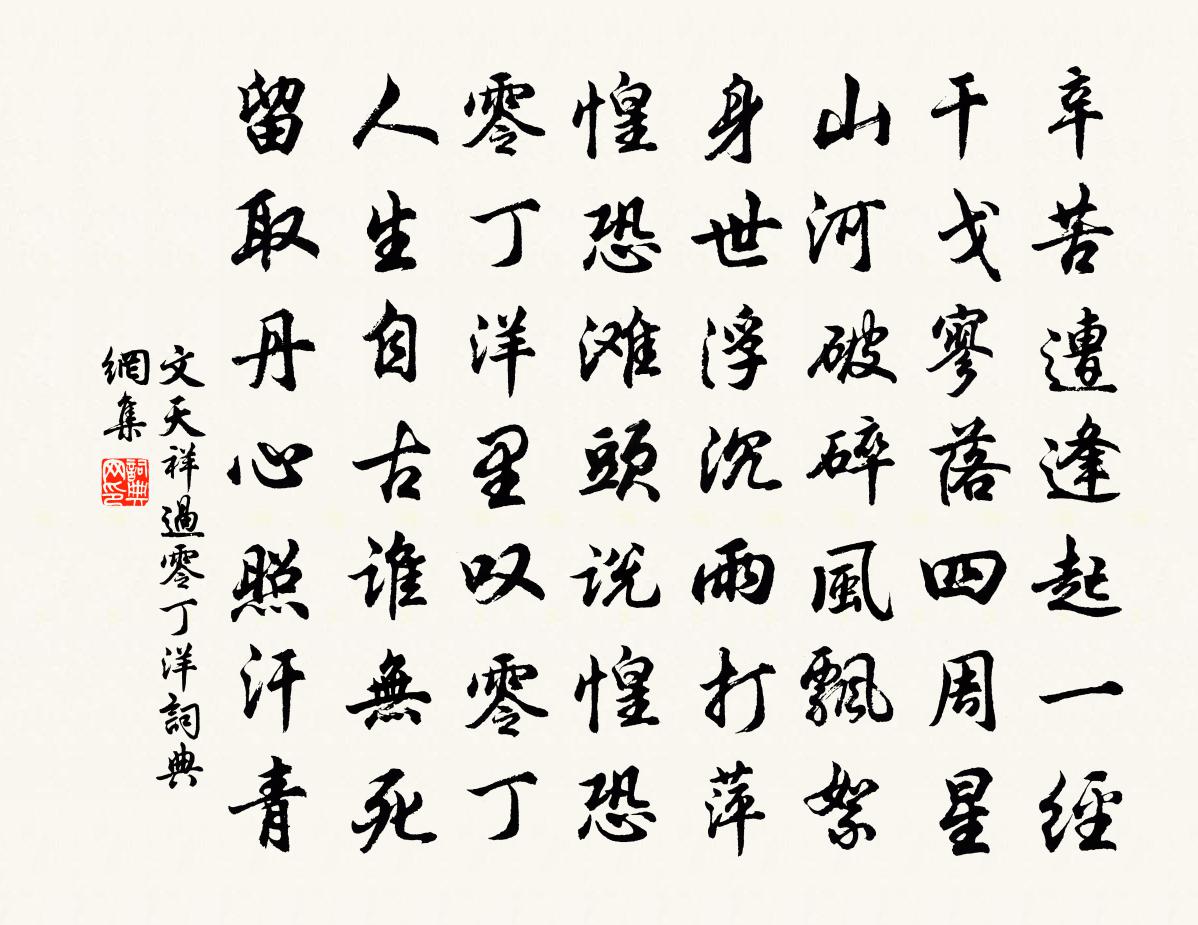 辛苦遭逢起一經
干戈寥落四周星
山河破碎風飄絮
身世浮沉雨打萍
惶恐滩頭说惶恐
零丁洋里叹零丁
人生自古谁無死
留取丹心照汗青
文天祥過零丁洋詞典
網集
詞典网印